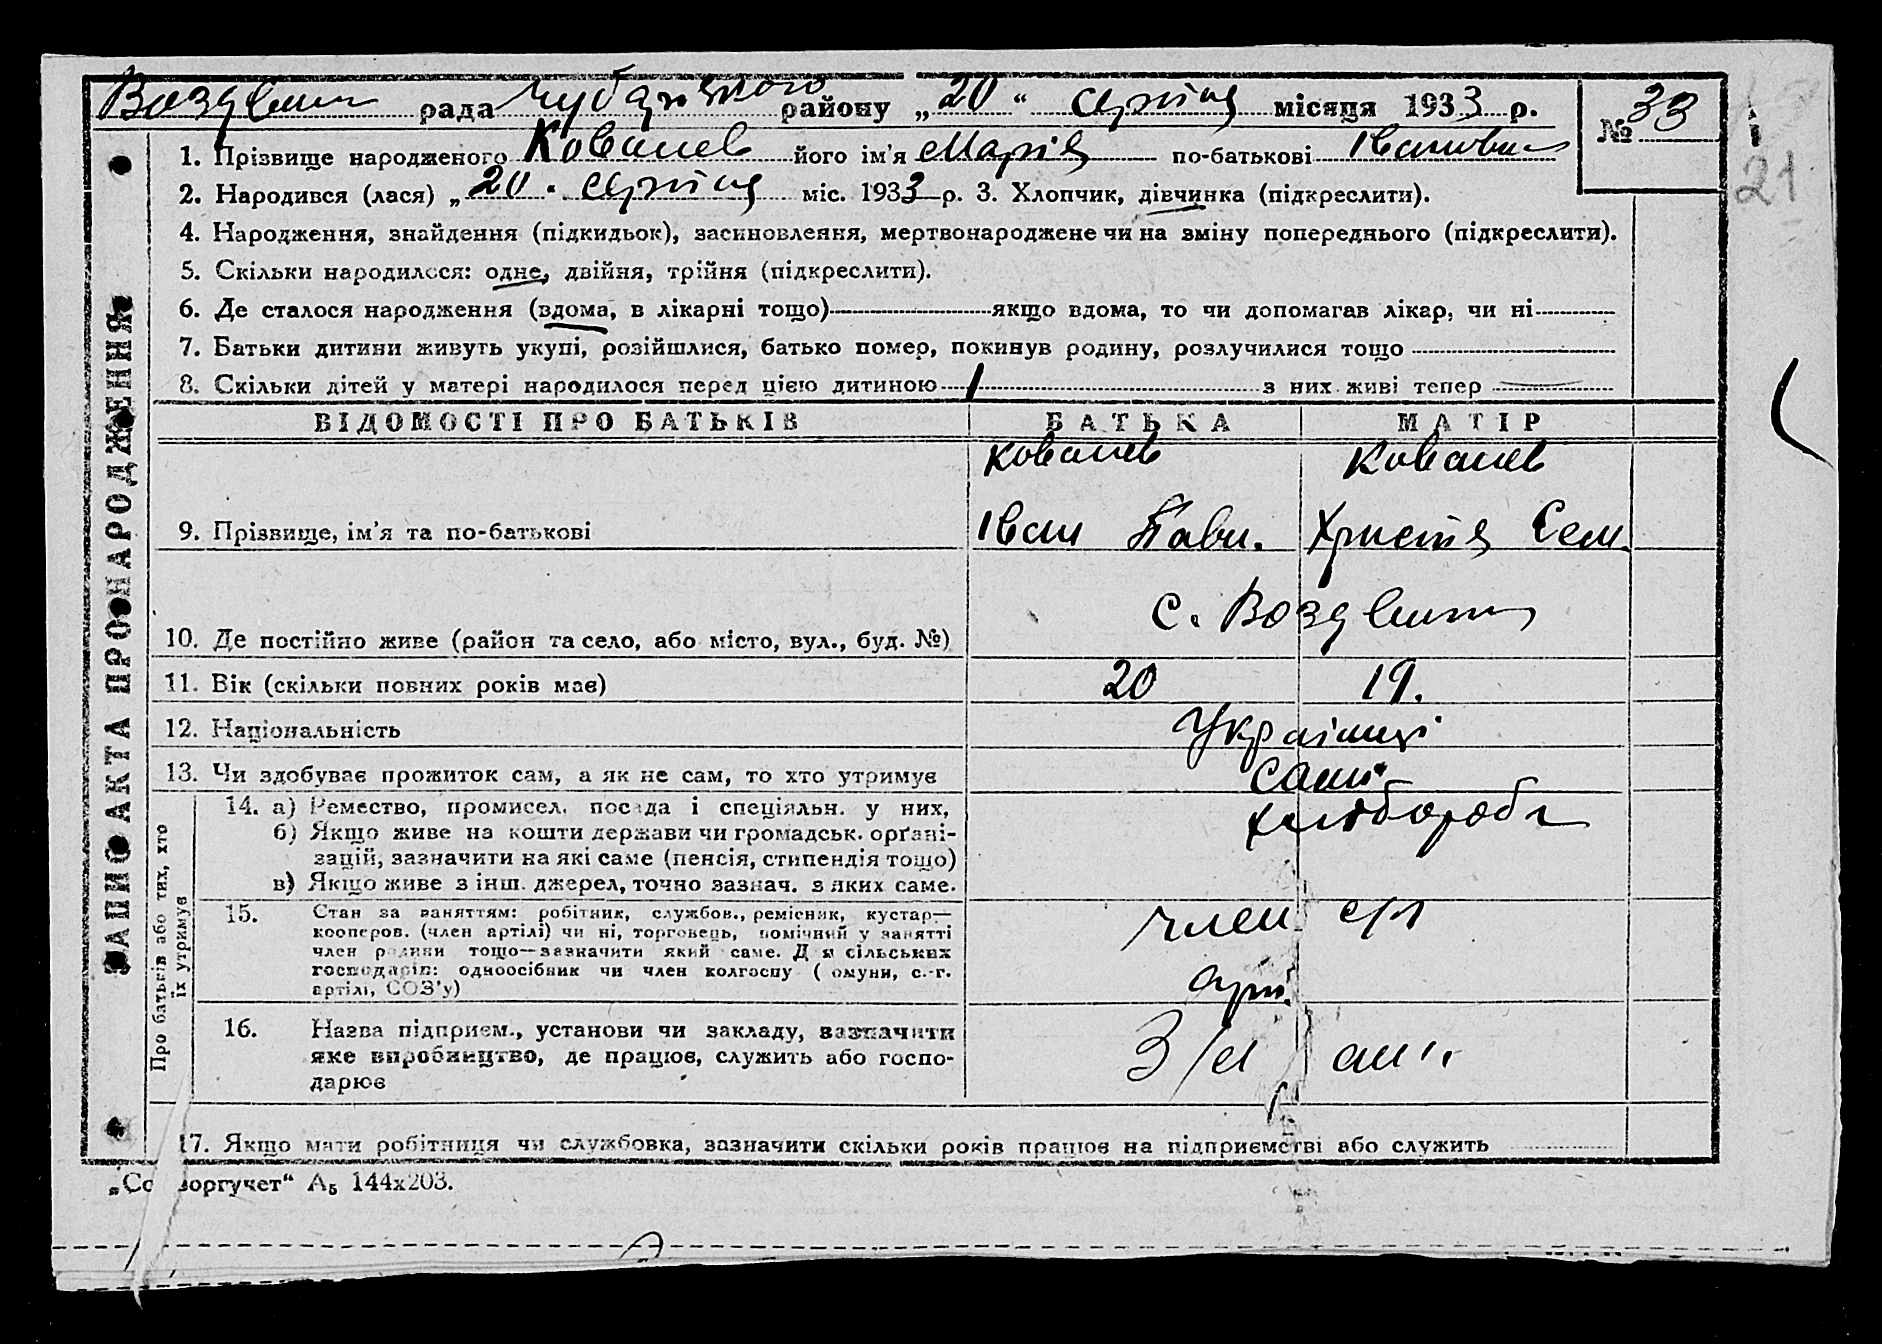 рада Чубарівського району „20“ серпня місяця 1933 р.
№ 33
21
1. Прізвище народженого Ковалев його ім'я Марія по-батькові Іванівна
2. Народився (лася) „20“ серпня міс. 1933 р. 3. Хлопчик, дівчинка (підкреслити).
4. Народження, знайдення (підкидьок), засиновлення, мертвонароджене чи на зміну попереднього (підкреслити).
5. Скільки народилося: одне, двійня, трійня (підкреслити).
6. Де сталося народження (вдома, в лікарні тощо) якщо вдома, то чи допомагав лікар, чи ні
7. Батьки дитини живуть укупі, розійшлися, батько помер, покинув родину, розлучилися тощо
8. Скільки дітей у матері народилося перед цією дитиною 1 з них живі тепер —
ЗАПИС АКТА ПРО НАРОДЖЕННЯ
ВІДОМОСТІ ПРО БАТЬКІВ БАТЬКА МАТІР
Ковалев Ковалев
9. Прізвище, ім'я та по-батькові Іван Павл. Христя Сем.
10. Де постійно живе (район та село, або місто, вул., буд. №) с.
11. Вік (скільки повних років має) 20 19.
12. Національність Українці
13. Чи здобуває прожиток сам, а як не сам, то хто утримує сами
Про батьків або тих, хто їх утримує
14. а) Ремество, промисел, посада і спеціяльн. у них, хлібороби
б) Якщо живе на кошти держави чи громадськ. орґані-
зацій, зазначити на які саме (пенсія, стипендія тощо)
в) Якщо живе з інш. джерел, точно зазнач. з яких саме.
15. Стан за заняттям: робітник, службов., ремісник, кустар— член с/г
кооперов. (член артілі) чи ні, торговець, помічний у занятті
член родини тощо—зазначити який саме. Для сільських
господарів: одноосібник чи член колгоспу ( омуни, с.-г. арт.
артілі, СОЗ'у)
16. Назва підприєм., установи чи закладу, зазначити
яке виробництво, де працює, служить або госпо-
дарює
17. Якщо мати робітниця чи службовка, зазначити скільки років працює на підприємстві або служить
„Со воргучет“ А₅ 144х203.